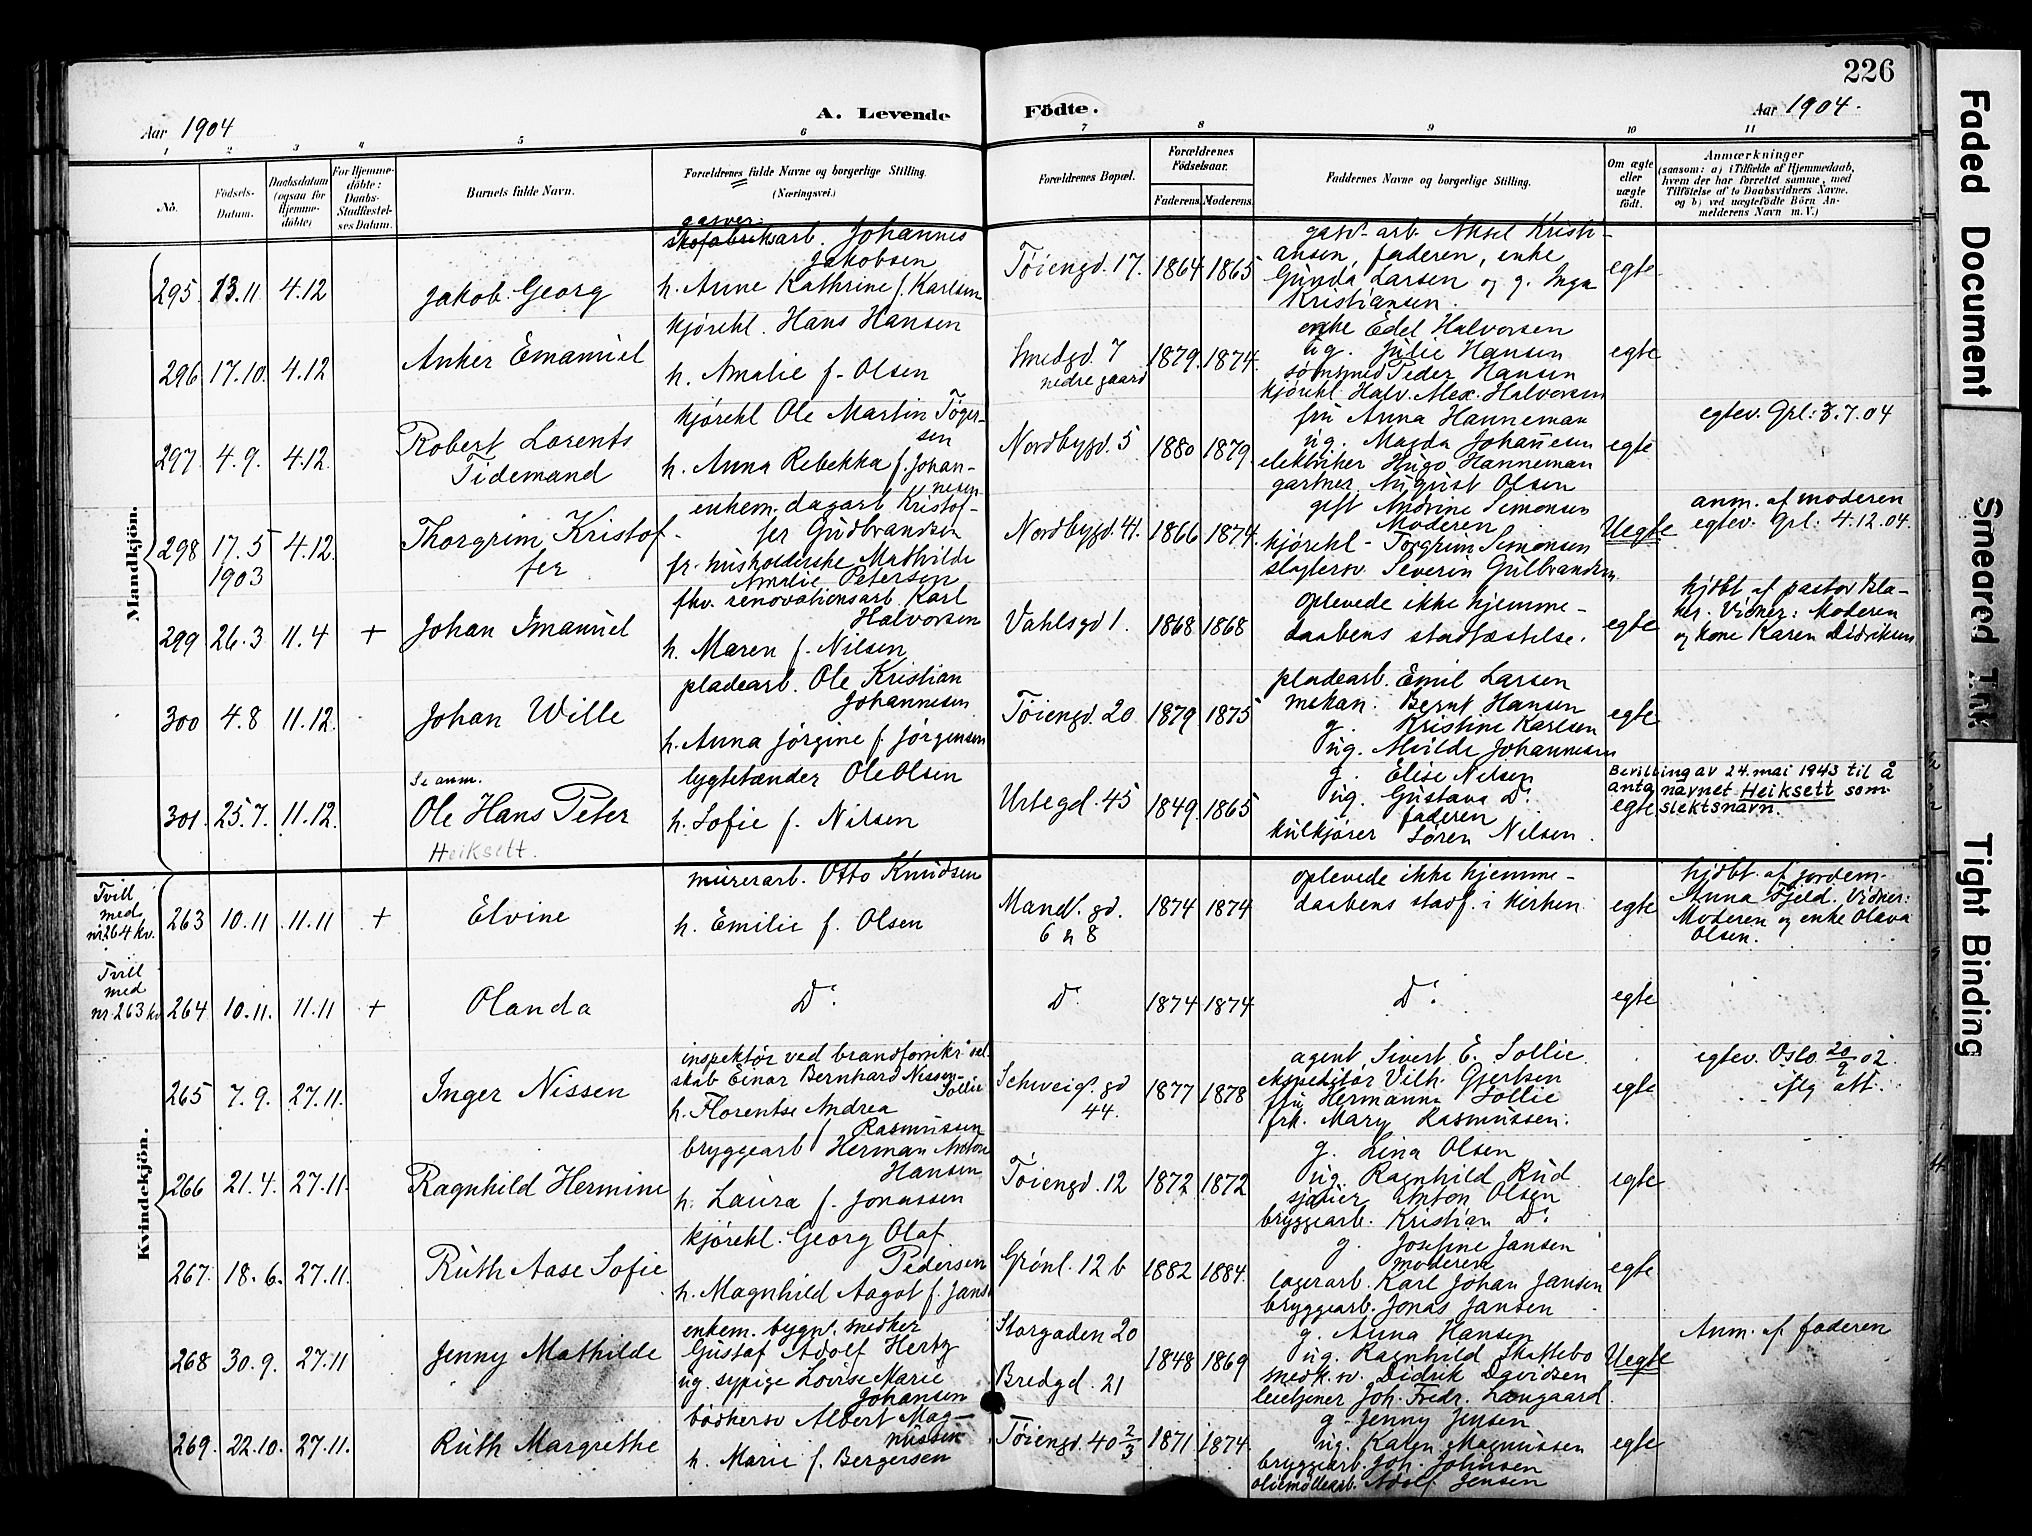 226
Aar 1904
A. Levende Födte.
Aar 1904.
1 2 3 4 5 6 7 8 9 10 11
No.
Födsels-Datum.
Daabsdatum (ogsaa for Hjemme-döbte)
For Hjemme-döbte: Daabs-Stadfæstel-ses Datum.
Barnets fulde Navn.
Forældrenes fulde Navne og borgerlige Stilling.
(Næringsvei.)
Forældrenes Bopæl.
Forældrenes Födselsaar.
Faderens.
Moderens.
Faddernes Navne og borgerlige Stilling.
Om ægte eller uægte födt.
Anmærkninger
(saasom: a) i Tilfælde af Hjemmedaab,
hvem der har forrettet samme, med
Tilföielse af to Daabsvidners Navne,
og b) ved uægtefödte Börn An-
melderens Navn m. V.)
Mandkjön.
295. 13.11 4.12
Jakob Georg
gasver.
skofabrikarb. Johannes
Jakobsen
h. Anne Kathrine f. Karlsen
Töiengd. 17.
1864 1865
gasv. arb. Aksel Kristi-
ansen, faderen, enke
Gunda Larsen og g. Inga
Kristiansen.
egte
296 17.10. 4.12
Anker Emanuel
kjørekl. Hans Hansen
h. Amalie f. Olsen
Smedgd. 7
nedre gaard
1879. 1874.
enke Edel Halvorsen
ug. Julie Hansen
Peder Hansen
kjørekl. Halv. Alex. Halvorsen
egte
297. 4.9. 4.12.
Robert Lorents
Tidemand
kjørekl Ole Martin Töger-
sen
h. Anna Rebekka f. Johan-
nesen
Nordbygd. 5
1880 1879.
fru Anna Hanneman
ug. Magda Johannesen
elektriker Hugo Hanneman
gartner August Olsen
egte
egtev. Grl: 3.7.04
298 17.5 4.12.
1903
Thorgrim Kristof-
fer
enkem. dagarb Kristof-
fer Gudbrandsen
fr. husholderske Mathilde
Amalie Petersen
Nordbygd. 41.
1866 1874.
gift Andrine Simonsen
Moderen
kjørekl - Torgrim Simonsen
slagtersv Severin Gulbrandsen
Uegte
anm. af moderen
egtev. Grl: 4.12.04.
299 26.3 11.4 +
Johan Imanuel
fhv. renovationsarb. Karl
Halvorsen
h. Maren f. Nilsen
Vahlsgd 1.
1868 1868
oplevede ikke hjemme-
daabens stadfæstelse.
egte
hjdbt af pastor Bla-
ker. Vidner: Moderen
og kone Karen Didriksen
300 4.8 11.12.
Johan Wille
pladearb. Ole Kristian
Johannesen
h. Anna Jörgine f. Jörgensen
Töiengd. 20
1879 1875
pladearb. Emil Larsen
mekan. Bernt Hansen
g. Kristine Karlsen
ug. Johannesen
egte
301. 25.7. 11.12.
Se anm.
Ole Hans Peter
Heiksett.
lygtetænder Ole Olsen
h. Sofie f. Nilsen
Urtegd. 45
1849 1865
g. Elise Nilsen
ug. Gustava Do
faderen
kulkjører Sören Nilsen.
egte
Bevilling av 24. mai 1943 til å
anta navnet Heiksett som
slektsnavn.
Kvindekjön.
Tvill
med
nr 264 kv.
263 10.11 11.11 +
Elvine
murerarb. Otto Knudsen
h. Emilie f. Olsen
Mand. gd.
6 & 8
1874 1874
oplevede ikke hjemme-
daabens stadf. i kirken
egte
hjdbt. af jordem.
Anna Fjeld. Vidner:
Moderen og enke Olava
Olsen.
Tvill
med
nr 263 kv
264 10.11. 11.11 +
Olanda
Do
Do
1874 1874
Do
egte
265 7.9. 27.11.
Inger Nissen
inspektør ved brandforsikr. sel-
skab Einar Bernhard Nissen-
Sollie
h. Florentse Andrea
f. Rasmussen
Schweig. gd
44.
1877 1878
agent Sivert E. Sollie
ekspeditör Vilh. Gjertsen
fru Hermanna Sollie
frk. Mary Rasmussen.
egte
egtev. Oslo 20/9 02.
iflg att.
266 21.4. 27.11.
Ragnhild Hermine
bryggearb Herman Anton
Hansen
h. Laura f. Jonassen
Töiengd. 12
1872 1872
g. Lina Olsen
ug. Ragnhild Rud
Anton Olsen
bryggearb. Kristian Do
egte
267. 18.6. 27.11.
Ruth Aase Sofie
kjørekl. Georg Olaf
Pedersen
h. Magnhild Aagot f. Jansen
Grönl. 12 b
1882 1884.
g. Josefine Jansen
moderen
lagerarb. Karl Johan Jansen
bryggearb. Jonas Jansen
egte
268 30.9. 27.11
Jenny Mathilde
enkem. bygn. snedker
Gustaf Adolf Hertz
ug. sypige Lovise Marie
Johansen
Storgaden 20
Bredgd. 21
1848 1869
g. Anna Hansen
ug. Ragnhild Skattebo
snedk. sv. Didrik Davidsen
Joh. Fredr. Langaard.
Uegte
Anm. af faderen
269. 22.10. 27.11.
Ruth Margrethe
bödkersv Albert Mag-
nussen
h. Marie f. Bergersen
Töiengd. 40 2/3
1871 1874.
g. Jenny Jensen
ug. Karen Magnussen
bryggearb. Joh. Johnsen
oliemöllearb. Adolf Jensen
egte
Faded Document
Smeared Ink
Tight Binding